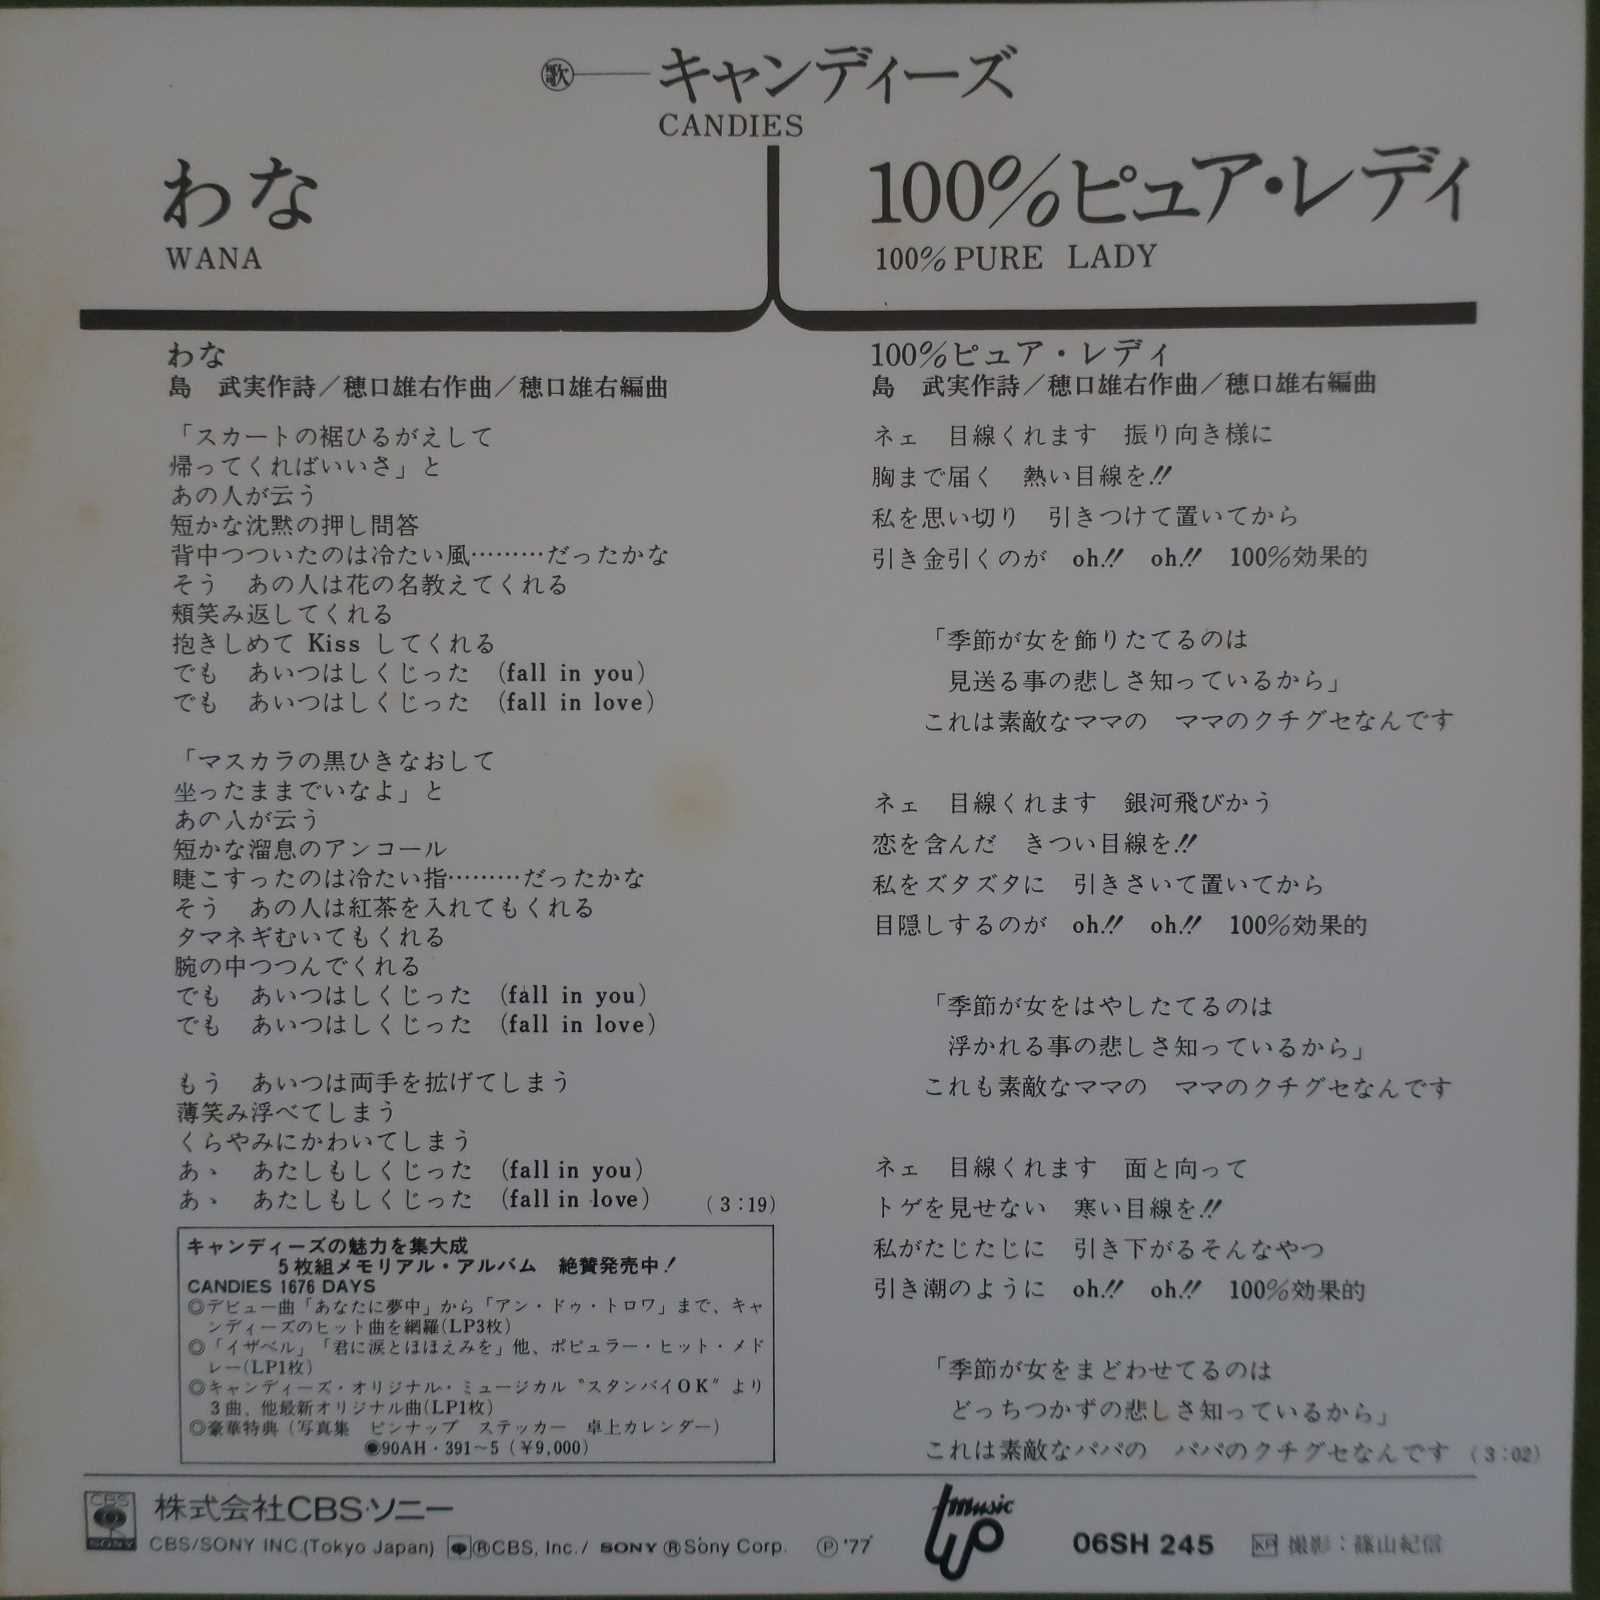 歌
キャンディーズ
CANDIES
わな
WANA
100%ピュア・レディ
100%PURE LADY
わな
島 武実作詩／穂口雄右作曲／穂口雄右編曲
「スカートの裾ひるがえして
帰ってくればいいさ」と
あの人が云う
短かな沈黙の押し問答
背中つついたのは冷たい風………だったかな
そう あの人は花の名教えてくれる
頬笑み返してくれる
抱きしめて Kiss してくれる
でも あいつはしくじった (fall in you)
でも あいつはしくじった (fall in love)
「マスカラの黒ひきなおして
坐ったままでいなよ」と
あの人が云う
短かな溜息のアンコール
睫こすったのは冷たい指………だったかな
そう あの人は紅茶を入れてもくれる
タマネギむいてもくれる
腕の中つつんでくれる
でも あいつはしくじった (fall in you)
でも あいつはしくじった (fall in love)
もう あいつは両手を拡げてしまう
薄笑み浮べてしまう
くらやみにかわいてしまう
あゝ あたしもしくじった (fall in you)
あゝ あたしもしくじった (fall in love) (3:19)
キャンディーズの魅力を集大成
5枚組メモリアル・アルバム 絶賛発売中！
CANDIES 1676 DAYS
◎デビュー曲「あなたに夢中」から「アン・ドゥ・トロワ」まで、キャ
ンディーズのヒット曲を網羅(LP3枚)
◎「イザベル」「君に涙とほほえみを」他、ポピュラー・ヒット・メド
レー(LP1枚)
◎キャンディーズ・オリジナル・ミュージカル〝スタンバイOK〟より
3曲、他最新オリジナル曲(LP1枚)
◎豪華特典（写真集 ピンナップ ステッカー 卓上カレンダー）
◉90AH・391～5（￥9,000）
100%ピュア・レディ
島 武実作詩／穂口雄右作曲／穂口雄右編曲
ネェ 目線くれます 振り向き様に
胸まで届く 熱い目線を!!
私を思い切り 引きつけて置いてから
引き金引くのが oh!! oh!! 100%効果的
「季節が女を飾りたてるのは
見送る事の悲しさ知っているから」
これは素敵なママの ママのクチグセなんです
ネェ 目線くれます 銀河飛びかう
恋を含んだ きつい目線を!!
私をズタズタに 引きさいて置いてから
目隠しするのが oh!! oh!! 100%効果的
「季節が女をはやしたてるのは
浮かれる事の悲しさ知っているから」
これも素敵なママの ママのクチグセなんです
ネェ 目線くれます 面と向って
トゲを見せない 寒い目線を!!
私がたじたじに 引き下がるそんなやつ
引き潮のように oh!! oh!! 100%効果的
「季節が女をまどわせてるのは
どっちつかずの悲しさ知っているから」
これは素敵なパパの パパのクチグセなんです (3:02)
CBS
SONY
株式会社CBS・ソニー
CBS/SONY INC.(Tokyo Japan) ®CBS, Inc./ SONY ®Sony Corp. Ⓟ'77
music up
06SH 245
KR 撮影：篠山紀信